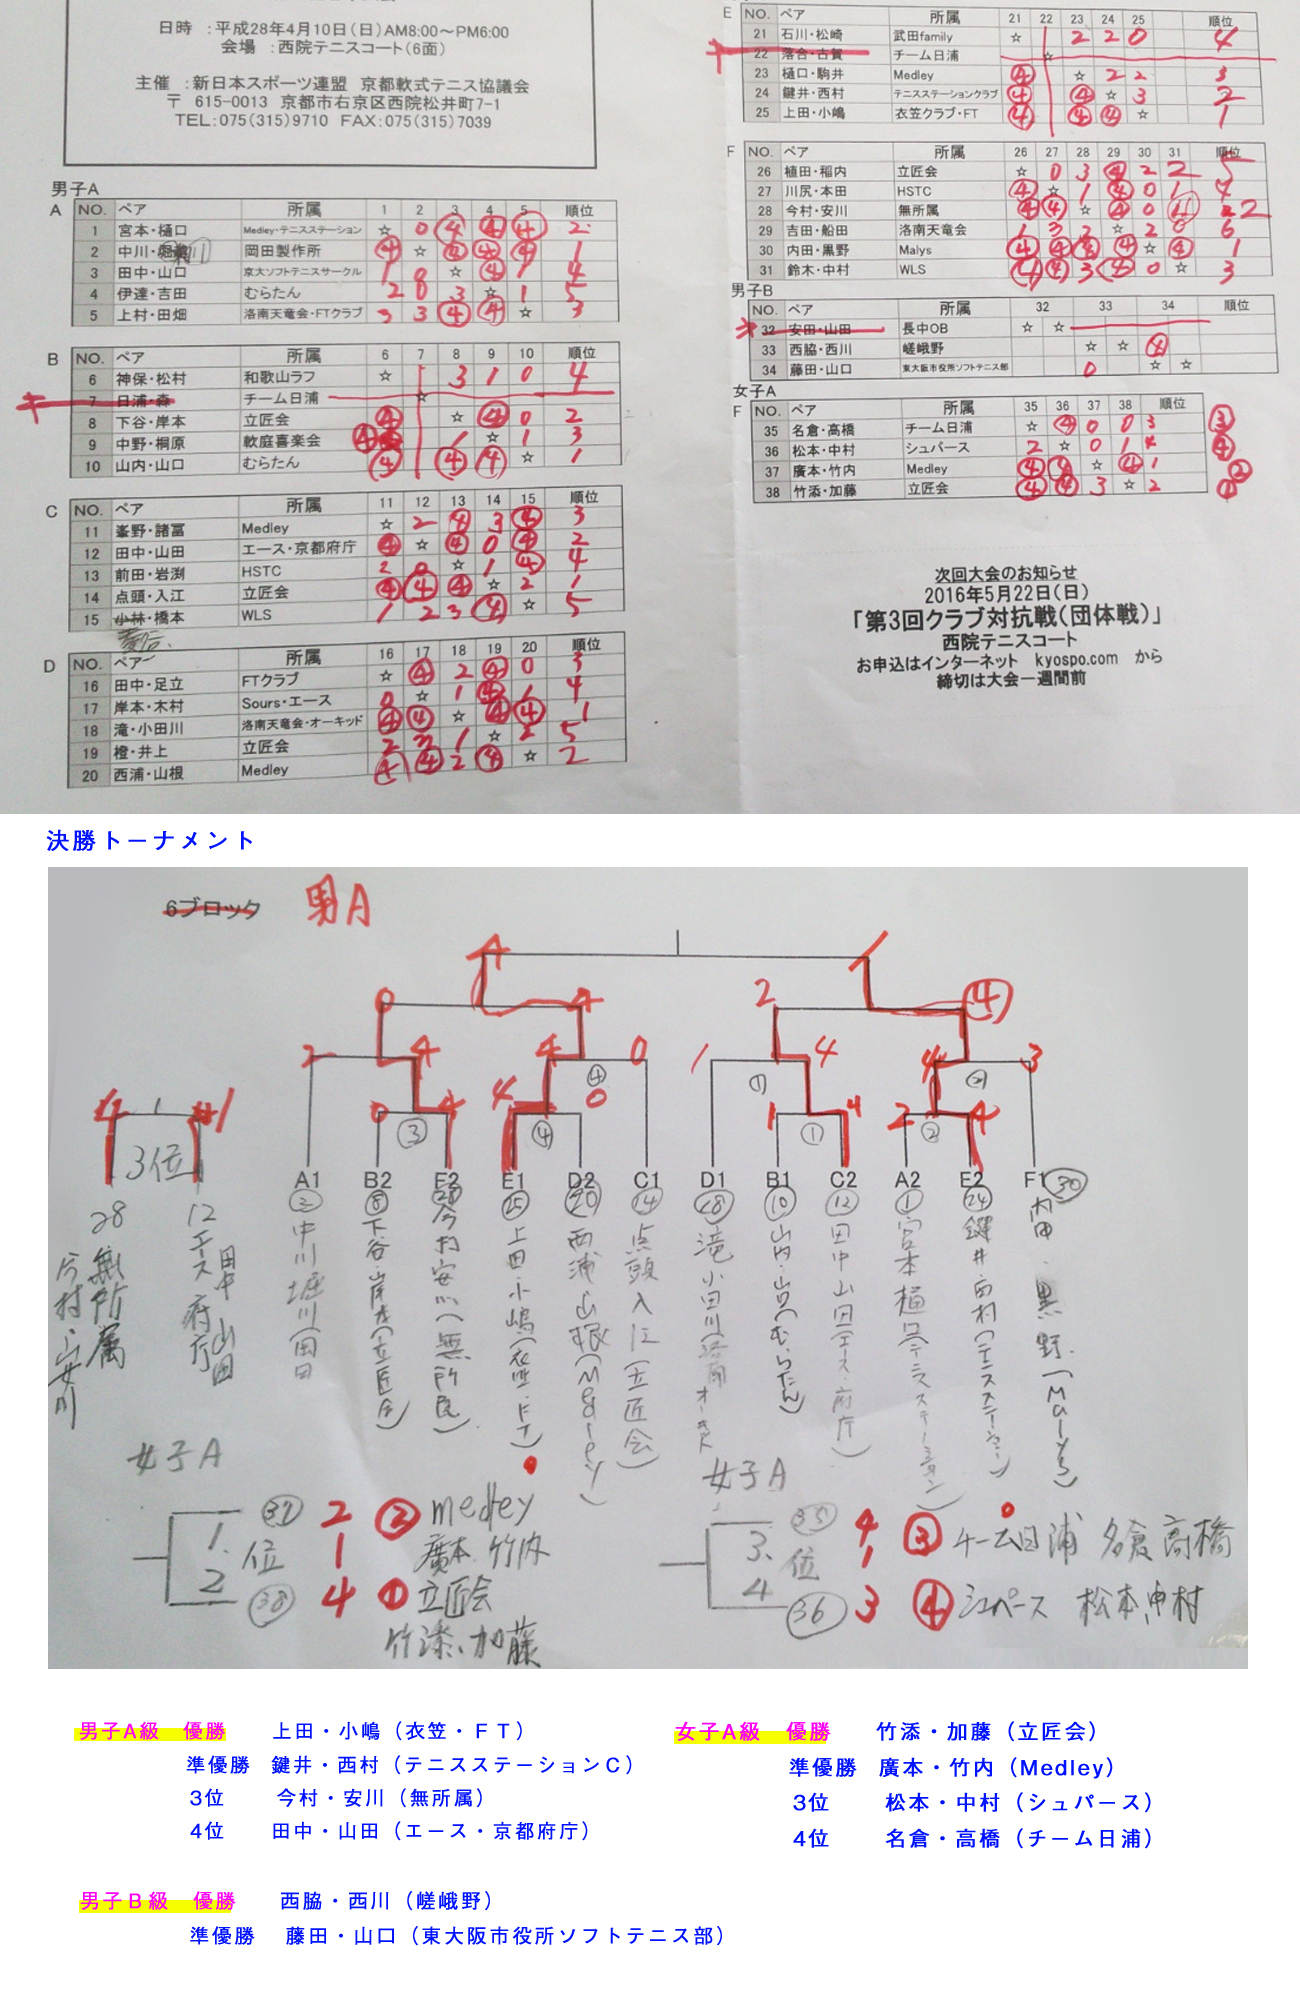 日時 :平成28年4月10日(日)AM8:00〜PM6:00
会場 :西院テニスコート(6面)
主催 :新日本スポーツ連盟 京都軟式テニス協議会
〒 615-0013 京都市右京区西院松井町7-1
TEL:075(315)9710 FAX:075(315)7039
男子A
A NO. ペア 所属 1 2 3 4 5 順位
1 宮本・樋口 Medley・テニスステーション ☆ 0 ④ ④ ④ 2
2 中川・ 岡田製作所 ④ ☆ ④ ④ 1
3 田中・山口 京大ソフトテニスサークル 1 0 ☆ ④ 1 4
4 伊達・吉田 むらたん 2 0 3 ☆ 1 5
5 上村・田畑 洛南天竜会・FTクラブ 3 3 ④ ④ ☆ 3
B NO. ペア 所属 6 7 8 9 10 順位
6 神保・松村 和歌山ラフ ☆ 3 1 0 4
キ 7 日浦・森 チーム日浦 ☆
8 下谷・岸本 立匠会 ④ ☆ ④ 0 2
9 中野・桐原 軟庭喜楽会 ④ 1 ☆ 1 3
10 山内・山口 むらたん ④ ④ ④ ☆ 1
C NO. ペア 所属 11 12 13 14 15 順位
11 峯野・諸冨 Medley ☆ 2 ④ 3 ④ 3
12 田中・山田 エース・京都府庁 ④ ☆ ④ 0 ④ 2
13 前田・岩渕 HSTC 2 0 ☆ 1 ④ 4
14 点頭・入江 立匠会 ④ ④ ④ ☆ 2 1
15 小林・橋本 WLS 1 2 3 ④ ☆ 5
D NO. ペア 所属 16 17 18 19 20 順位
16 田中・足立 FTクラブ ☆ ④ 2 ④ 0 3
17 岸本・木村 Sours・エース 0 ☆ 1 ④ 1 4
18 滝・小田川 洛南天竜会・オーキッド ④ ④ ☆ ④ ④ 1
19 橙・井上 立匠会 2 1 ☆ 2 5
20 西浦・山根 Medley ④ ④ 2 ④ ☆ 2
E NO. ペア 所属 21 22 23 24 25 順位
21 石川・松崎 武田family ☆ 2 2 0 4
キ 22 落合・古賀 チーム日浦 ☆
23 樋口・駒井 Medley ④ ☆ 2 2 3
24 鍵井・西村 テニスステーションクラブ ④ ④ ☆ 3 2
25 上田・小嶋 衣笠クラブ・FT ④ ④ ④ ☆ 1
F NO. ペア 所属 26 27 28 29 30 31 順位
26 植田・稲内 立匠会 ☆ 0 3 ④ 2 2 5
27 川尻・本田 HSTC ④ ☆ 1 ④ 0 1 4
28 今村・安川 無所属 ④ ④ ☆ ④ 0 2
29 吉田・船田 洛南天竜会 1 3 2 ☆ 2 0 6
30 内田・黒野 Malys ④ ④ ④ ④ ☆ ④ 1
31 鈴木・中村 WLS ④ ④ 3 ④ 0 ☆ 3
男子B
NO. ペア 所属 32 33 34 順位
キ 32 安田・山田 長中OB ☆ ☆
33 西脇・西川 嵯峨野 ☆ ☆ ④
34 藤田・山口 東大阪市役所ソフトテニス部 0 ☆ ☆
女子A
F NO. ペア 所属 35 36 37 38 順位
35 名倉・高橋 チーム日浦 ☆ ④ 0 0 3 ③
36 松本・中村 シュパース 2 ☆ 0 1 4 ④
37 廣本・竹内 Medley ④ ④ ☆ ④ 1 ②
38 竹添・加藤 立匠会 ④ ④ 3 ☆ 2 ①
次回大会のお知らせ
2016年5月22日(日)
「第3回クラブ対抗戦(団体戦)」
西院テニスコート
お申込はインターネット kyospo.com から
締切は大会一週間前
決勝トーナメント
6ブロック 男A
4 1
0 4 2 ④
2 4 4 0 1 4 4 3
④ 0 ① ②
4 1 0 4 4 1 4 2 4
3位 ③ ④ ① ②
A1 B2 F2 E1 D2 C1 D1 B1 C2 A2 E2 F1
28 無所属 今村・安川
12 エース 府庁 田中 山田
② 中川 堀川(岡田
⑧ 下谷・岸本(立匠会)
㉘ 今村 安川(無所属)
㉕ 上田・小嶋(衣笠・FT)
⑳ 西浦 山根(Medley)
⑭ 点頭 入江(立匠会)
⑱ 滝 小田川(洛南オーキット
⑩ 山内・山口(むらたん)
⑫ 田中 山田(エース・府庁)
① 宮本 樋口(テニスステーション)
㉔ 鍵井・西村(テニスステーション)
㉚ 内田・黒野(Malys)
女子A
1. 2 位 ㊲ 2 1 ② medley
廣本 竹内
㊳ 4 ① 立匠会
竹添、加藤
女子A
3. 4 位 ㉟ 4 1 ③ チーム日浦 名倉 高橋
㊱ 3 ④ シュパース 松本、中村
男子A級 優勝 上田・小嶋(衣笠・FT)
準優勝 鍵井・西村(テニスステーションC)
3位 今村・安川(無所属)
4位 田中・山田(エース・京都府庁)
女子A級 優勝 竹添・加藤(立匠会)
準優勝 廣本・竹内(Medley)
3位 松本・中村(シュパース)
4位 名倉・高橋(チーム日浦)
男子B級 優勝 西脇・西川(嵯峨野)
準優勝 藤田・山口(東大阪市役所ソフトテニス部)